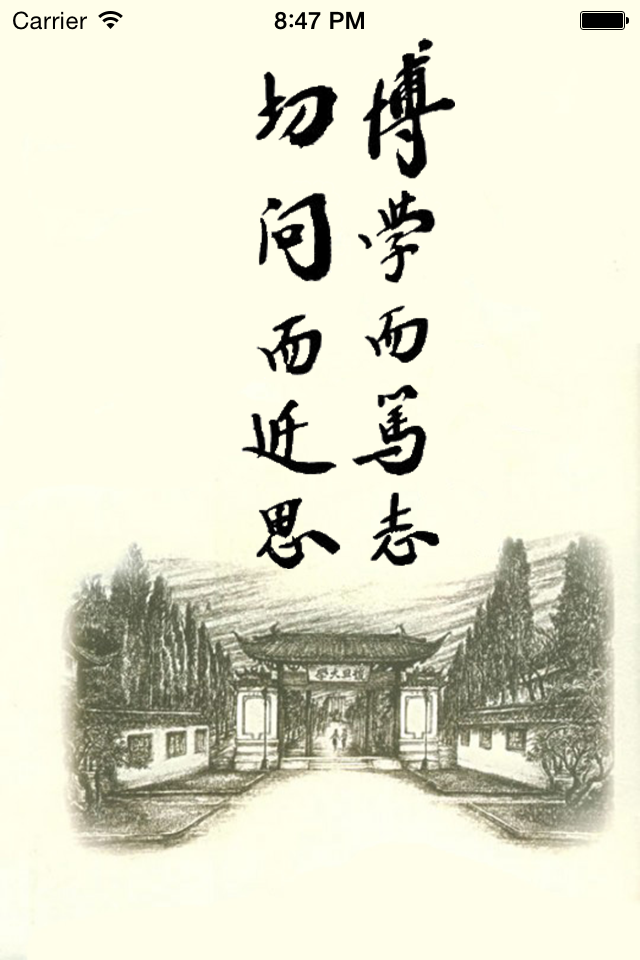 Carrier 8:47 PM
博学而篤志
切问而近思
復旦大學